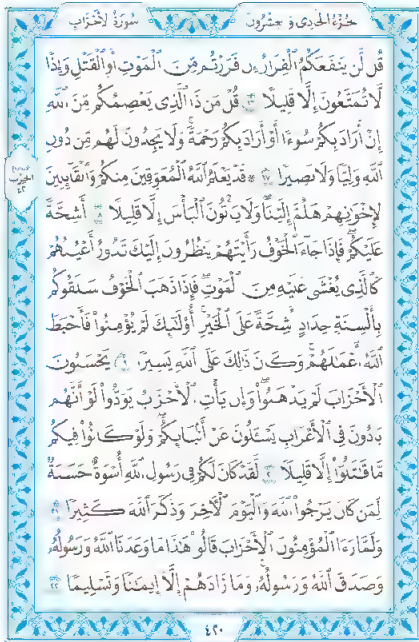 سُورَةُ الأَحْزَابِ
جُزْءُ الْحَادِى وَ عِشْرُون
قُل لَّن يَنفَعَكُمُ ٱلْفِرَارُ إِن فَرَرْتُم مِّنَ ٱلْمَوْتِ أَوِ ٱلْقَتْلِ وَإِذًا
لَّا تُمَتَّعُونَ إِلَّا قَلِيلًا ١٦ قُلْ مَن ذَا ٱلَّذِى يَعْصِمُكُم مِّنَ ٱللَّهِ
إِنْ أَرَادَ بِكُمْ سُوٓءًا أَوْ أَرَادَ بِكُمْ رَحْمَةً وَلَا يَجِدُونَ لَهُم مِّن دُونِ
ٱللَّهِ وَلِيًّا وَلَا نَصِيرًا ١٧ ۞ قَدْ يَعْلَمُ ٱللَّهُ ٱلْمُعَوِّقِينَ مِنكُمْ وَٱلْقَآئِلِينَ
لِإِخْوَٰنِهِمْ هَلُمَّ إِلَيْنَا وَلَا يَأْتُونَ ٱلْبَأْسَ إِلَّا قَلِيلًا ١٨ أَشِحَّةً
عَلَيْكُمْ فَإِذَا جَآءَ ٱلْخَوْفُ رَأَيْتَهُمْ يَنظُرُونَ إِلَيْكَ تَدُورُ أَعْيُنُهُمْ
كَٱلَّذِى يُغْشَىٰ عَلَيْهِ مِنَ ٱلْمَوْتِ فَإِذَا ذَهَبَ ٱلْخَوْفُ سَلَقُوكُم
بِأَلْسِنَةٍ حِدَادٍ أَشِحَّةً عَلَى ٱلْخَيْرِ أُو۟لَٰٓئِكَ لَمْ يُؤْمِنُوا۟ فَأَحْبَطَ
ٱللَّهُ أَعْمَٰلَهُمْ وَكَانَ ذَٰلِكَ عَلَى ٱللَّهِ يَسِيرًا ١٩ يَحْسَبُونَ
ٱلْأَحْزَابَ لَمْ يَذْهَبُوا۟ وَإِن يَأْتِ ٱلْأَحْزَابُ يَوَدُّوا۟ لَوْ أَنَّهُم
بَادُونَ فِى ٱلْأَعْرَابِ يَسْـَٔلُونَ عَنْ أَنۢبَآئِكُمْ وَلَوْ كَانُوا۟ فِيكُم
مَّا قَٰتَلُوٓا۟ إِلَّا قَلِيلًا ٢٠ لَّقَدْ كَانَ لَكُمْ فِى رَسُولِ ٱللَّهِ أُسْوَةٌ حَسَنَةٌ
لِّمَن كَانَ يَرْجُوا۟ ٱللَّهَ وَٱلْيَوْمَ ٱلْءَاخِرَ وَذَكَرَ ٱللَّهَ كَثِيرًا ٢١
وَلَمَّا رَءَا ٱلْمُؤْمِنُونَ ٱلْأَحْزَابَ قَالُوا۟ هَٰذَا مَا وَعَدَنَا ٱللَّهُ وَرَسُولُهُۥ
وَصَدَقَ ٱللَّهُ وَرَسُولُهُۥ وَمَا زَادَهُمْ إِلَّآ إِيمَٰنًا وَتَسْلِيمًا ٢٢
٤٢٠